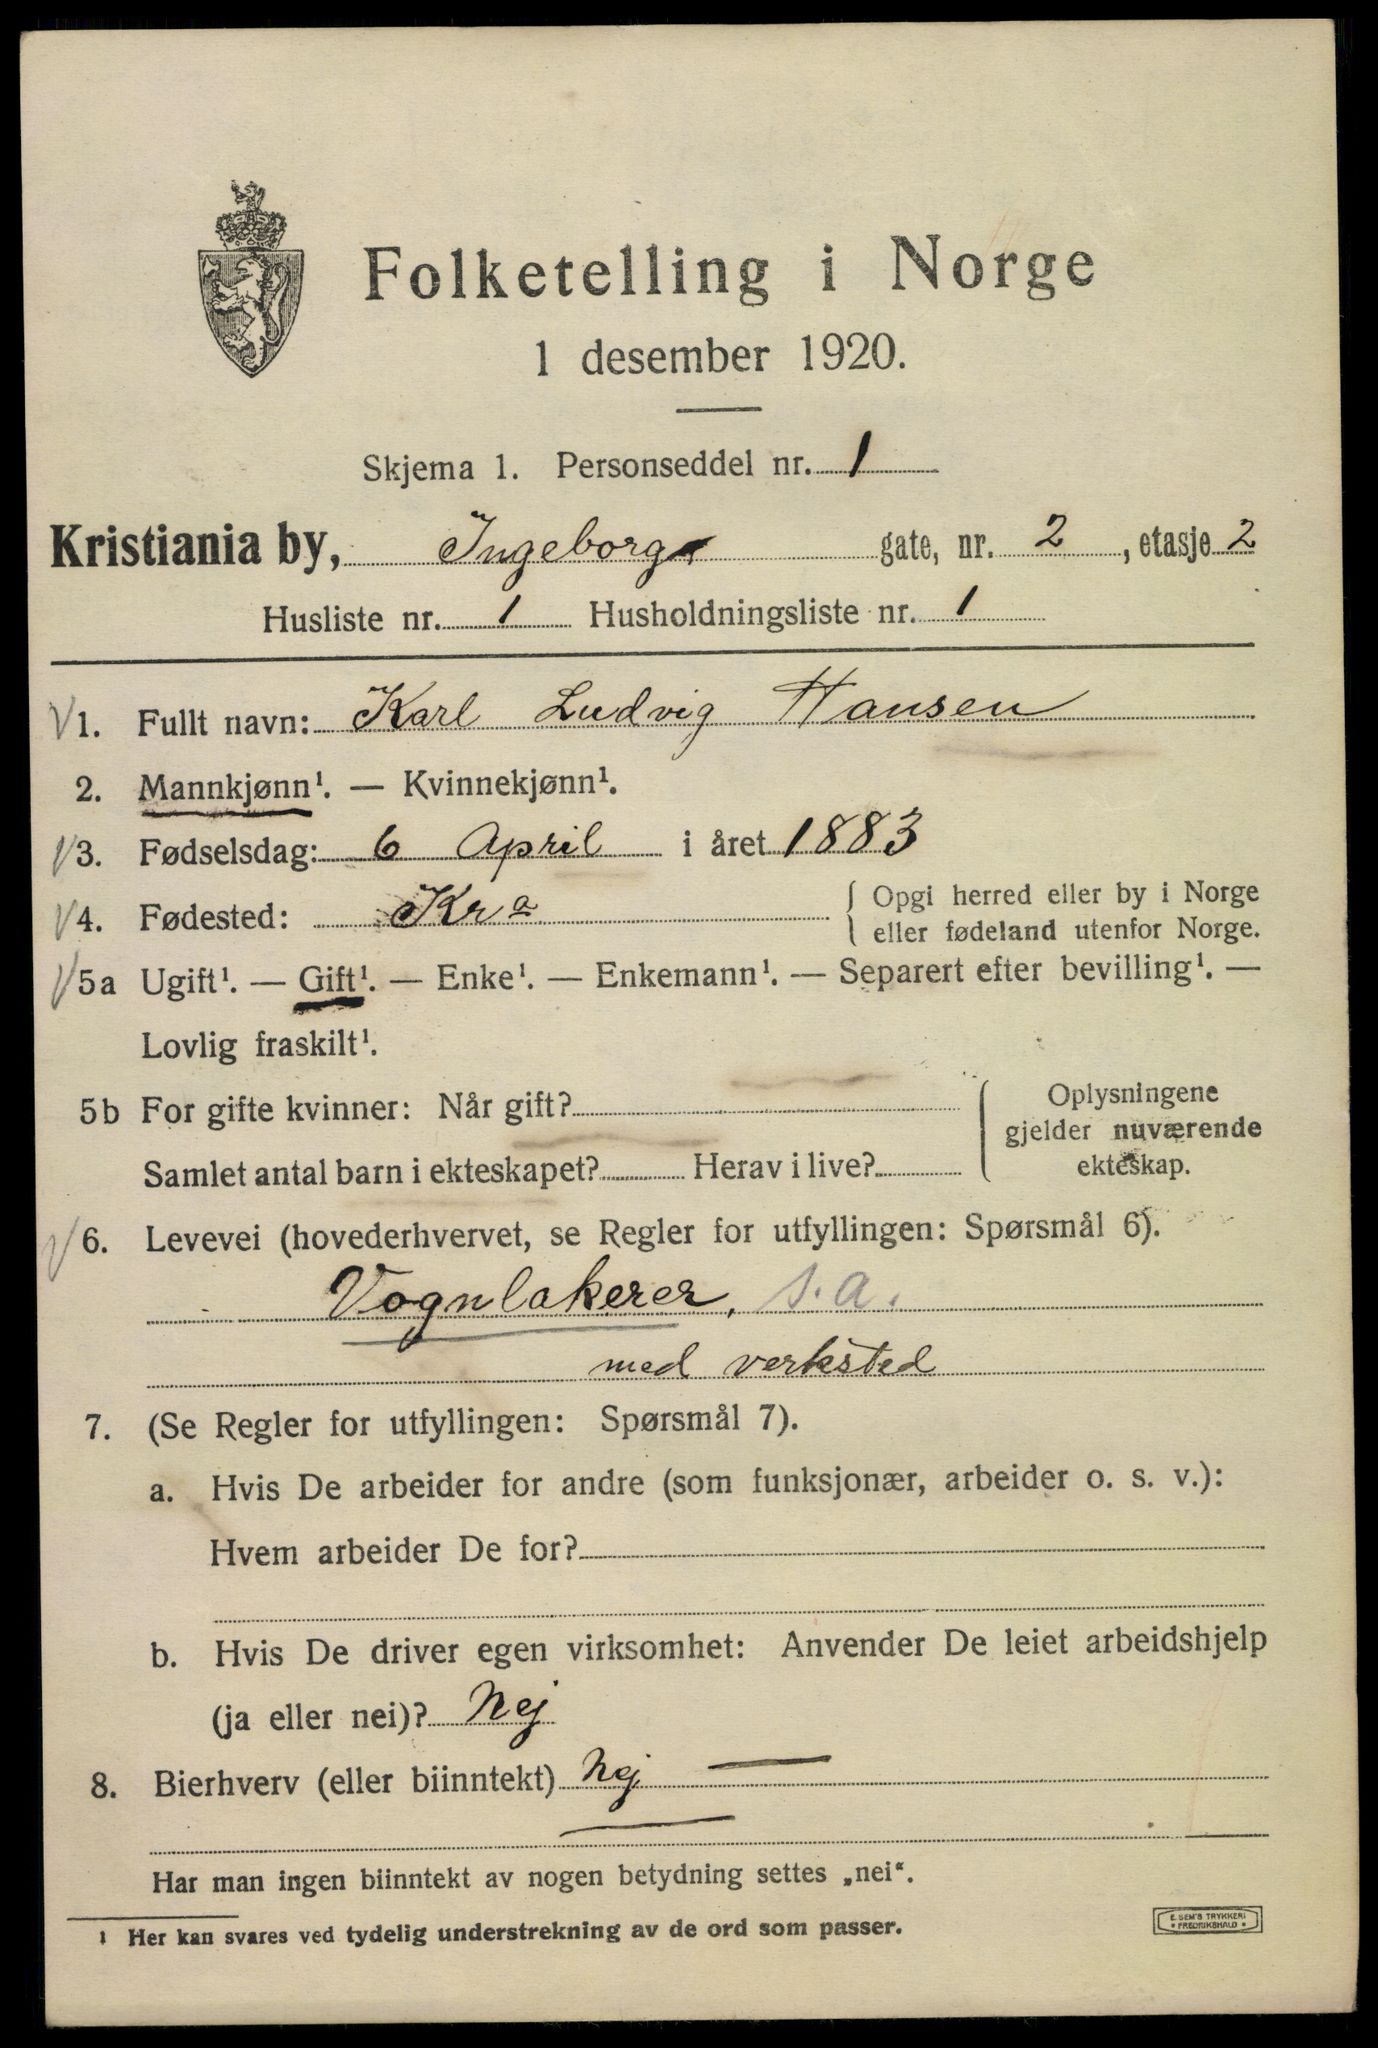 Folketelling i Norge
1 desember 1920.
Skjema 1. Personseddel nr. 1
Kristiania by, Ingeborg gate, nr. 2, etasje 2
Husliste nr. 1 Husholdningsliste nr. 1
1. Fullt navn: Karl Ludvig Hansen
2. Mannkjønn¹. — Kvinnekjønn¹.
3. Fødselsdag: 6 April i året 1883
4. Fødested: Kra { Opgi herred eller by i Norge
eller fødeland utenfor Norge.
5a Ugift¹. — Gift¹. — Enke¹. — Enkemann¹. — Separert efter bevilling¹. —
Lovlig fraskilt¹.
5b For gifte kvinner: Når gift?
Samlet antal barn i ekteskapet? Herav i live?
Oplysningene
gjelder nuværende
ekteskap.
6. Levevei (hovederhvervet, se Regler for utfyllingen: Spørsmål 6).
Vognlakerer, s.a.
med verksted
7. (Se Regler for utfyllingen: Spørsmål 7).
a. Hvis De arbeider for andre (som funksjonær, arbeider o. s. v.):
Hvem arbeider De for?
b. Hvis De driver egen virksomhet: Anvender De leiet arbeidshjelp
(ja eller nei)? Nej
8. Bierhverv (eller biinntekt) Nej
Har man ingen biinntekt av nogen betydning settes „nei“.
¹ Her kan svares ved tydelig understrekning av de ord som passer.
E. SEM'S TRYKKERI
* FREDRIKSHALD *